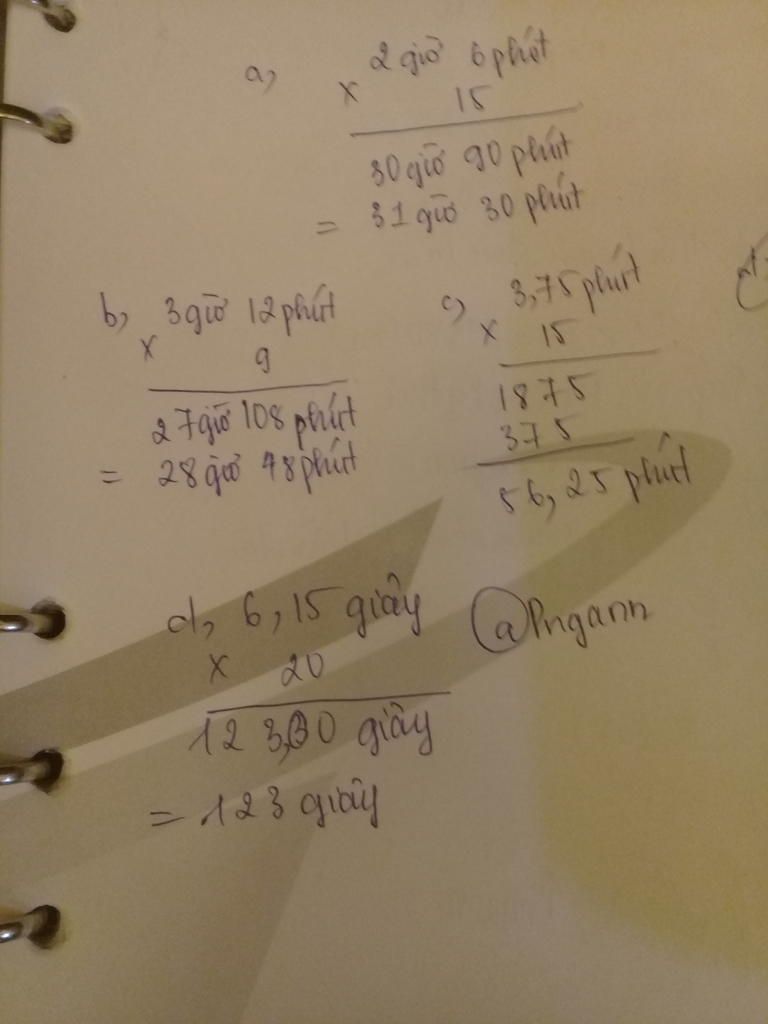 a, 2 giờ 6 phút
x 15
30 giờ 90 phút
= 31 giờ 30 phút
b, 3 giờ 12 phút
x 9
27 giờ 108 phút
= 28 giờ 48 phút
c, 3,75 phút
x 15
1875
375
56,25 phút
d, 6,15 giây
x 20
123,00 giây
= 123 giây
@Pngann